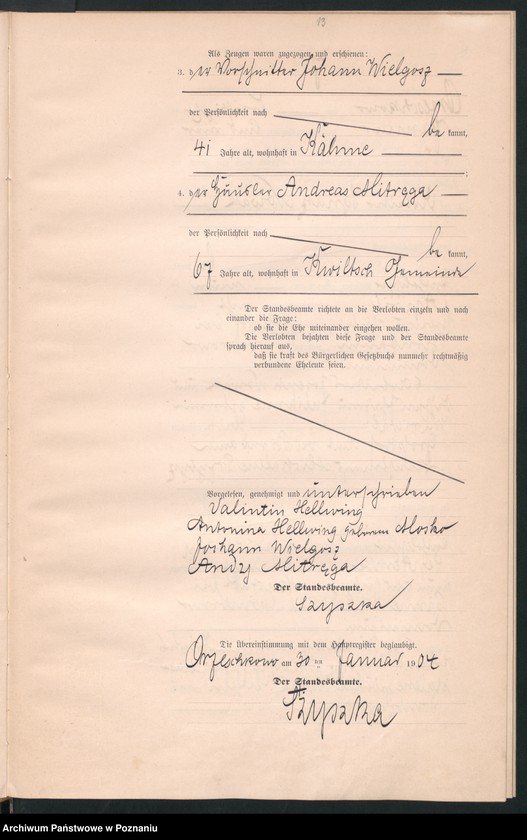 13
Als Zeugen waren zugezogen und erschienen:
3. der Vorschnitter Johann Wielgosz
der Persönlichkeit nach
be kannt,
41 Jahre alt, wohnhaft in Kähme
4. der Häusler Andreas Mitręga
der Persönlichkeit nach
be kannt,
67 Jahre alt, wohnhaft in Kwiltsch Gemeinde
Der Standesbeamte richtete an die Verlobten einzeln und nach
einander die Frage:
ob sie die Ehe miteinander eingehen wollen.
Die Verlobten bejahten diese Frage und der Standesbeamte
sprach hierauf aus,
daß sie kraft des Bürgerlichen Gesetzbuchs nunmehr rechtmäßig
verbundene Eheleute seien.
Vorgelesen, genehmigt und unterschrieben
Valentin Hellwing
Antonina Hellwing geborene
Johann Wielgosz
Mitręga
Der Standesbeamte.
Szyszka
Die Übereinstimmung mit dem Hauptregister beglaubigt.
am 30 ten Januar 1904
Der Standesbeamte.
Szyszka
Archiwum Państwowe w Poznaniu